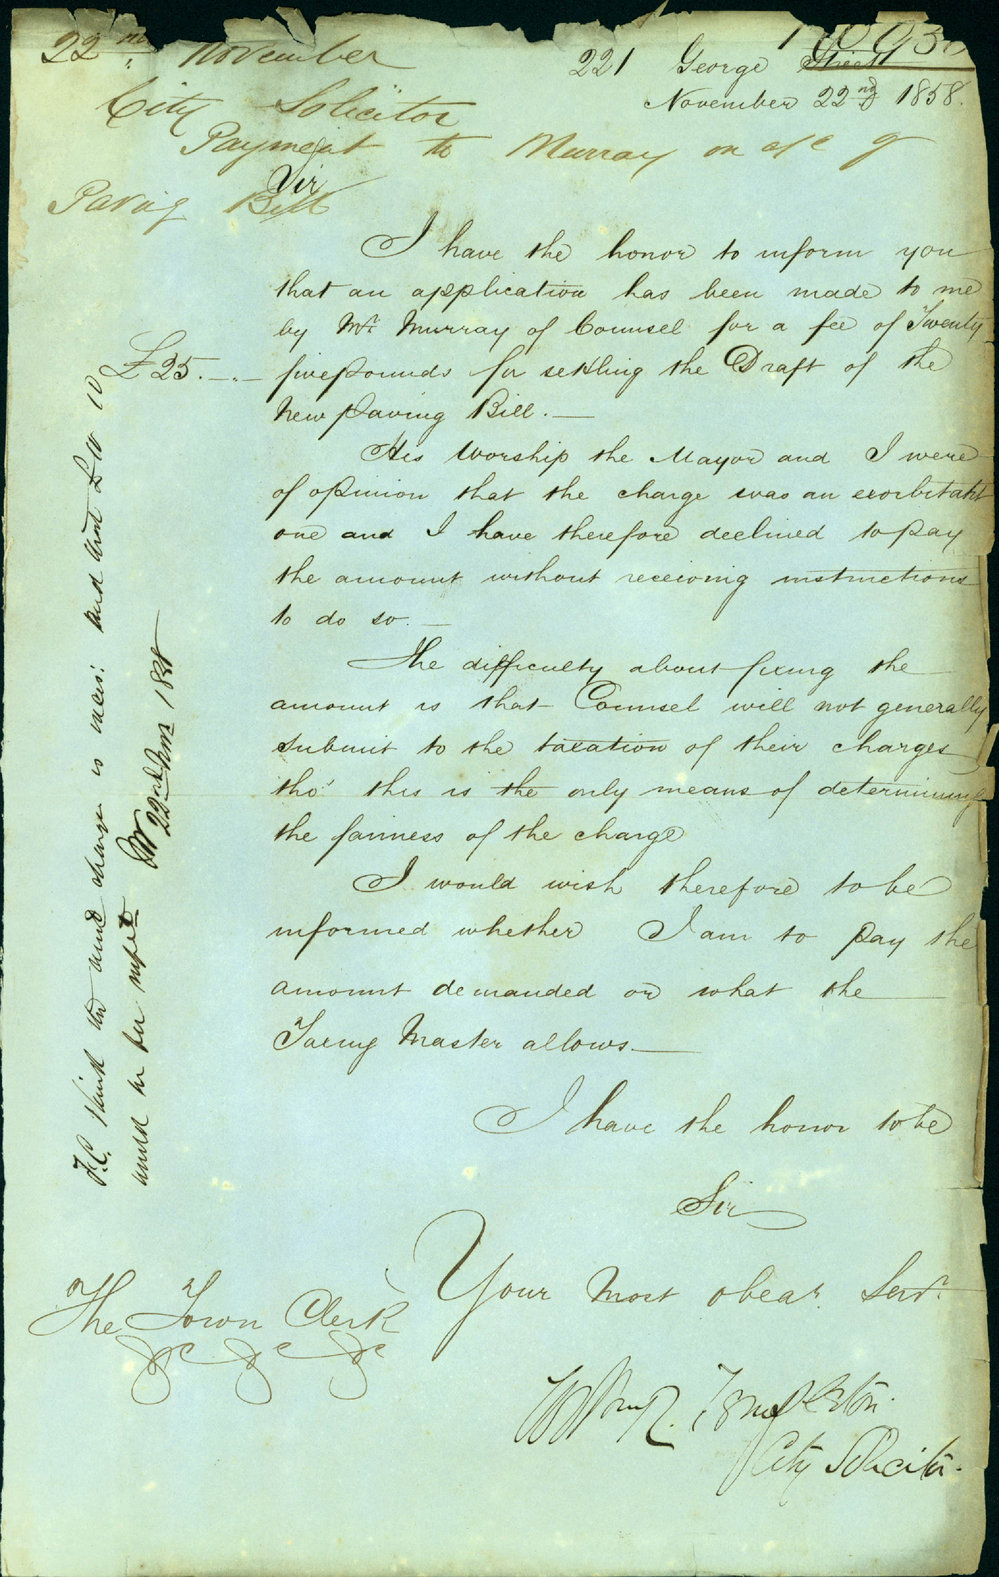 22nd November
City Solicitor
Payment to Murray on a/c of
Paving Bill
221 George Street
November 22nd 1858.
Sir
I have the honor to inform you
that an application has been made to me
by Mr. Murray of Counsel for a fee of Twenty
£25.-.- five pounds for settling the Draft of the
New paving Bill.—
His Worship the Mayor and I were
of opinion that the charge was an exorbitant
one and I have therefore declined to pay
the amount without receiving instructions
to do so.—
The difficulty about fixing the
amount is that Counsel will not generally
submit to the taxation of their charges
tho' this is the only means of determining
the fairness of the charge
I would wish therefore to be
informed whether I am to pay the
amount demanded or what the
Taxing Master allows.—
I have the honor to be
Sir
Your most obedt. Servt.
City Solicitor.
The Town Clerk
&c &c &c
F.C. think the charge is and that £10 10
would be
22nd Novr 1858